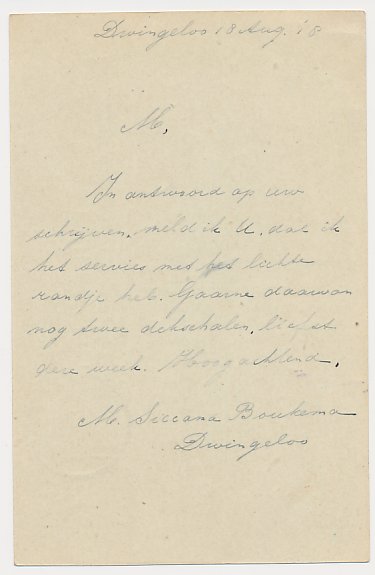 Dwingeloo 18 Aug. '18
M,
In antwoord op uw
schrijven, meld ik U, dat ik
het servies met het lichte
randje heb. Gaarne daarvan
nog twee dekschalen, liefst
deze week. Hoogachtend,
M. Siccama Boukema
Dwingeloo